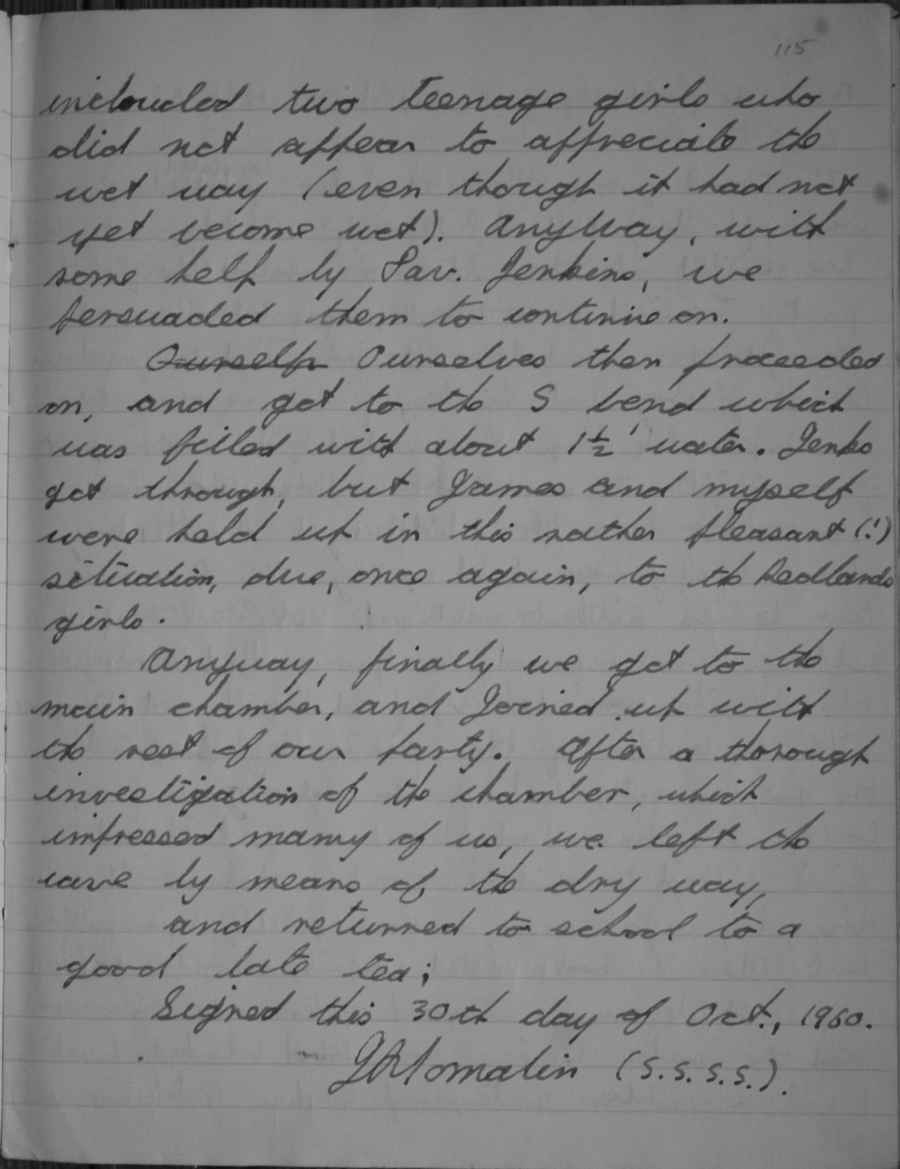 115
included two teenage girls who
did not appear to appreciate the
wet way (even though it had not
yet become wet). Anyway, with
some help by Pav. Jenkins, we
persuaded them to continue on.
Ourself Ourselves then proceeded
on, and got to the S bend which
was filled with about 1½' water. Jenks
got through, but James and myself
were held up in this rather pleasant (!)
situation, due, once again, to the Redlands
girls.
Anyway, finally we got to the
main chamber, and joined up with
the rest of our party. After a thorough
investigation of the chamber, which
impressed many of us, we left the
cave by means of the dry way,
and returned to school to a
good late tea;
Signed this 30th day of Oct., 1960.
Tomalin (S.S.S.S.).